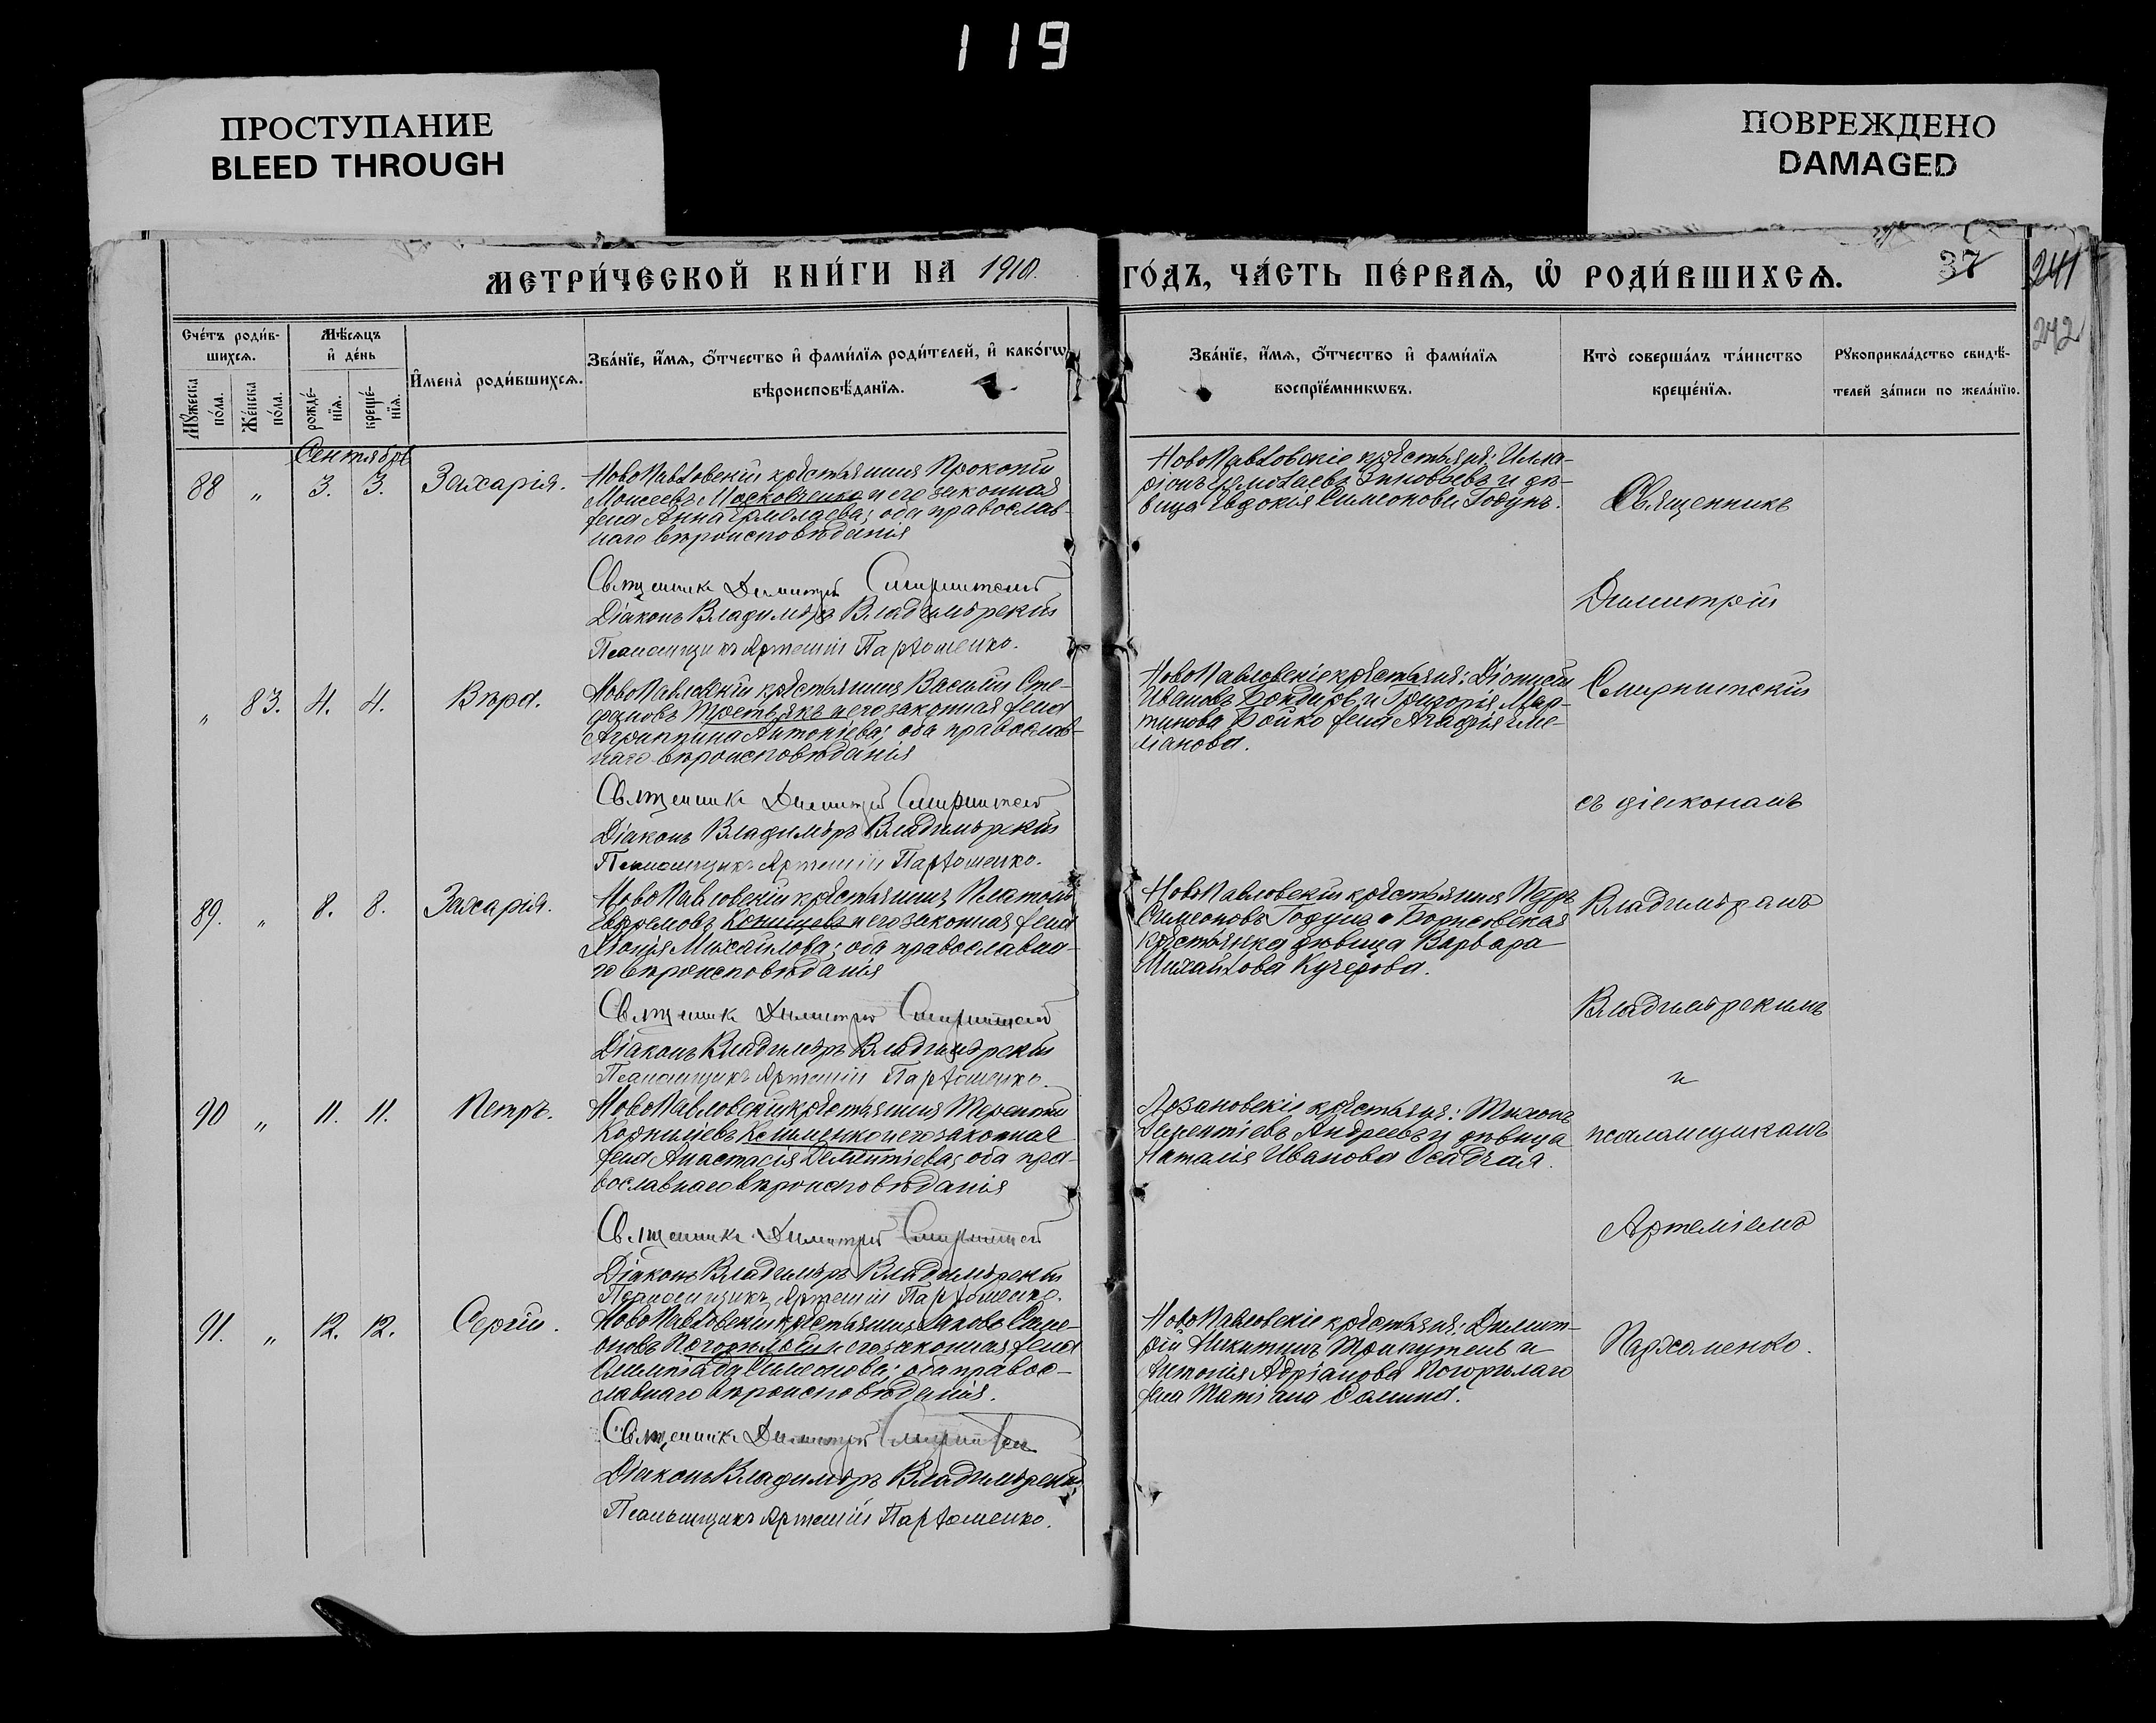 119
ПРОСТУПАНИЕ
BLEED THROUGH
ПОВРЕЖДЕНО
DAMAGED
МЕТРИ́ЧЕСКОЙ КНИ́ГИ НА 1910.
ГО́ДЪ, ЧА́СТЬ ПЕ́РВАѦ, Ѡ҆ РОДИ́ВШИХСѦ.
37
241
242
Сче́тъ роди́в-
шихсѧ.
Мѣ́сѧцъ
и҆ де́нь
И҆мена̀ роди́вшихсѧ.
Зва́нїе, и҆́мѧ, ѻ҆́тчество и҆ фами́лїѧ роди́телей, и҆ како́гѡ
вѣроисповѣ́данїѧ.
Мꙋ́жеска
по́ла.
Же́нска
по́ла.
рожде́-
нїѧ.
креще́-
нїѧ.
Зва́нїе, и҆́мѧ, ѻ҆́тчество и҆ фами́лїѧ
воспрїе́мникѡвъ.
Кто̀ соверша́лъ та́инство
креще́нїѧ.
Рꙋкоприкла́дство свидѣ́-
телей за́писи по жела́нїю.
Сентябрь
88 „ 3. 3. Захарія.
НовоПавловскій крестьянинъ Прокопій
Моисеевъ Московченко и его законная
жена Анна Ермолаева; оба православ-
наго вѣроисповѣданія
Священникъ Димитрій
Діаконъ Владиміръ Владимірскій
Псаломщикъ Артемій Пархоменко.
НовоПавловскіе крестьяне: Илла-
ріонъ Ермолаевъ Зиновьевъ и дѣ-
вица Евдокія Симеонова Годунъ.
Священникъ
Димитрій
„ 83. 4. 4. Вѣра.
НовоПавловскій крестьянинъ Василій Сте-
фановъ Третьякъ и его законная жена
Агриппина Антоніева; оба православ-
наго вѣроисповѣданія
Священникъ Димитрій
Діаконъ Владиміръ Владимірскій
Псаломщикъ Артемій Пархоменко.
НовоПавловскіе крестьяне: Діонисій
Ивановъ Бондарь и Григорія Мар-
тинова Бойко жена Агафія Еме-
ліанова.
съ діакономъ
89. „ 8. 8. Захарія.
НовоПавловскій крестьянинъ Платонъ
Ефремовъ и его законная жена
Михайлова; оба православна-
го вѣроисповѣданія
Священникъ Димитрій
Діаконъ Владиміръ Владимірскій
Псаломщикъ Артемій Пархоменко.
НовоПавловскій крестьянинъ Петръ
Симеоновъ Годунъ и
крестьянка дѣвица Варвара
Михайлова Кучерова.
Владиміромъ
Владимірскимъ
и
90 „ 11. 11. Петръ.
НовоПавловскій крестьянинъ Терентій
Корниліевъ Клименко и его законная
жена Анастасія Дементіева; оба пра-
вославнаго вѣроисповѣданія
Священникъ Димитрій
Діаконъ Владиміръ Владимірскій
Псаломщикъ Артемій Пархоменко.
Лозановскіе крестьяне: Тихонъ
Андреевъ и дѣвица
Наталія Иванова Осадчая.
псаломщикомъ
Артеміемъ
91. „ 12. 12. Сергій.
НовоПавловскій крестьянинъ Іаковъ Симе-
оновъ Погорѣлый и его законная жена
Олимпіада Симеонова; оба правос-
лавнаго вѣроисповѣданія.
Священникъ Димитрій
Діаконъ Владиміръ Владимірскій
Псаломщикъ Артемій Пархоменко.
НовоПавловскіе крестьяне: Димит-
рій Никитинъ и
Антонія Адріанова Погорѣлаго
жена Татіана
Пархоменко.